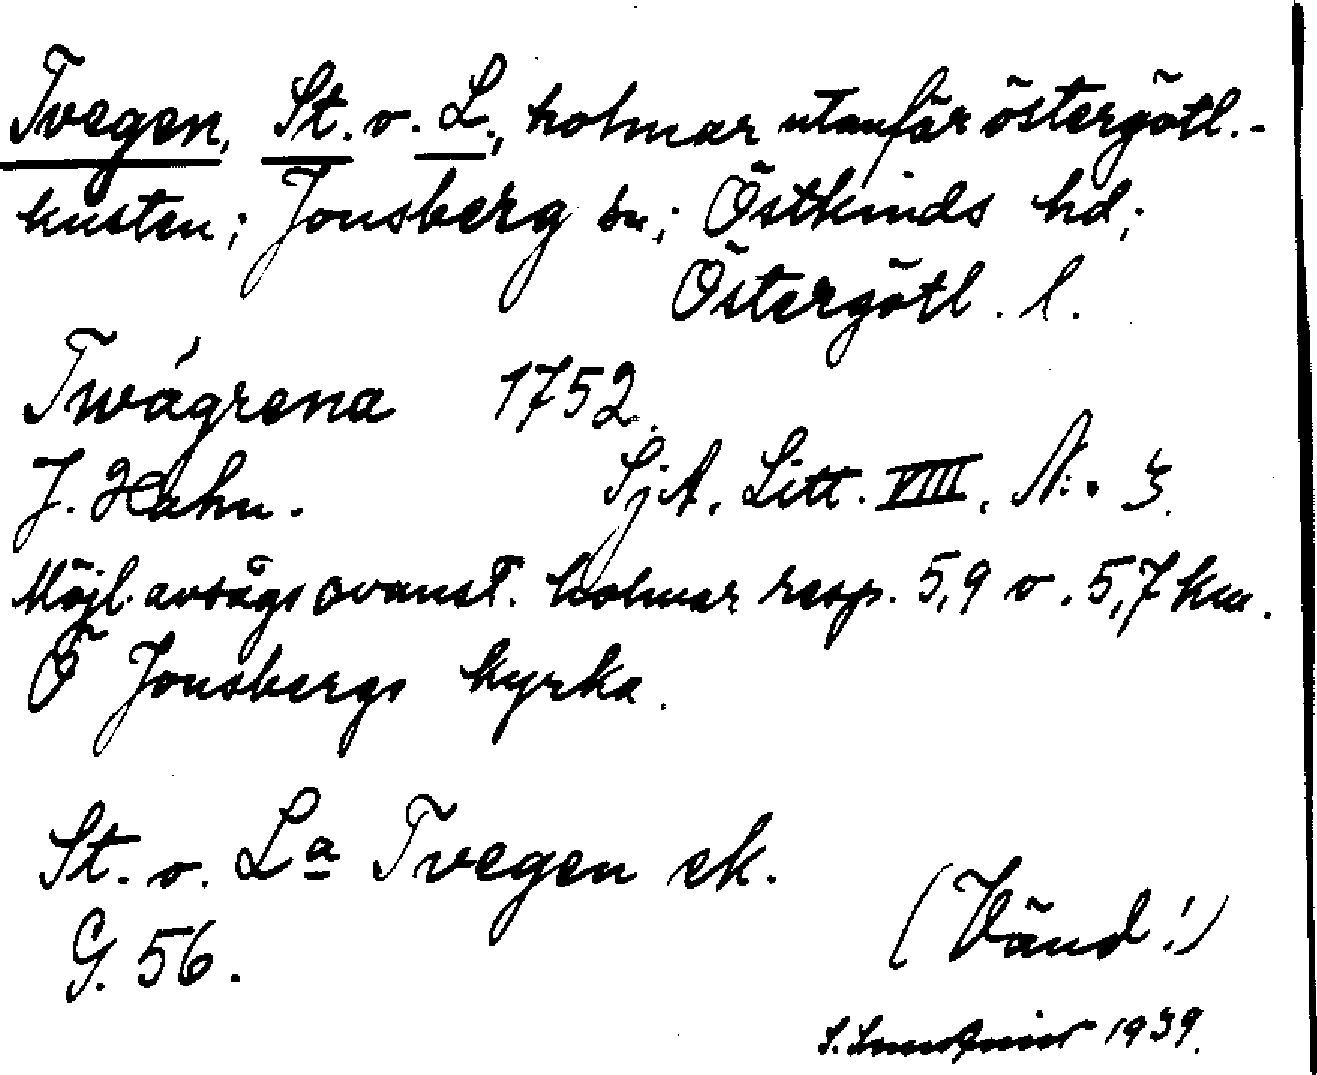 Tvegen, St. o. L., holmar utanför östergötl.-
kusten; Jonsberg sn; Östkinds hd;
Östergötl. l.
Twågrena 1752.
J. Hahn. SjA. Litt. VIII. N:o 3.
Möjl. avsågs ovanst. holmar resp. 5,9 o. 5,7 km.
O Jonsbergs kyrka.
St. o. La Tvegen ek.
G. 56.
(Vänd!)
S. 1939.